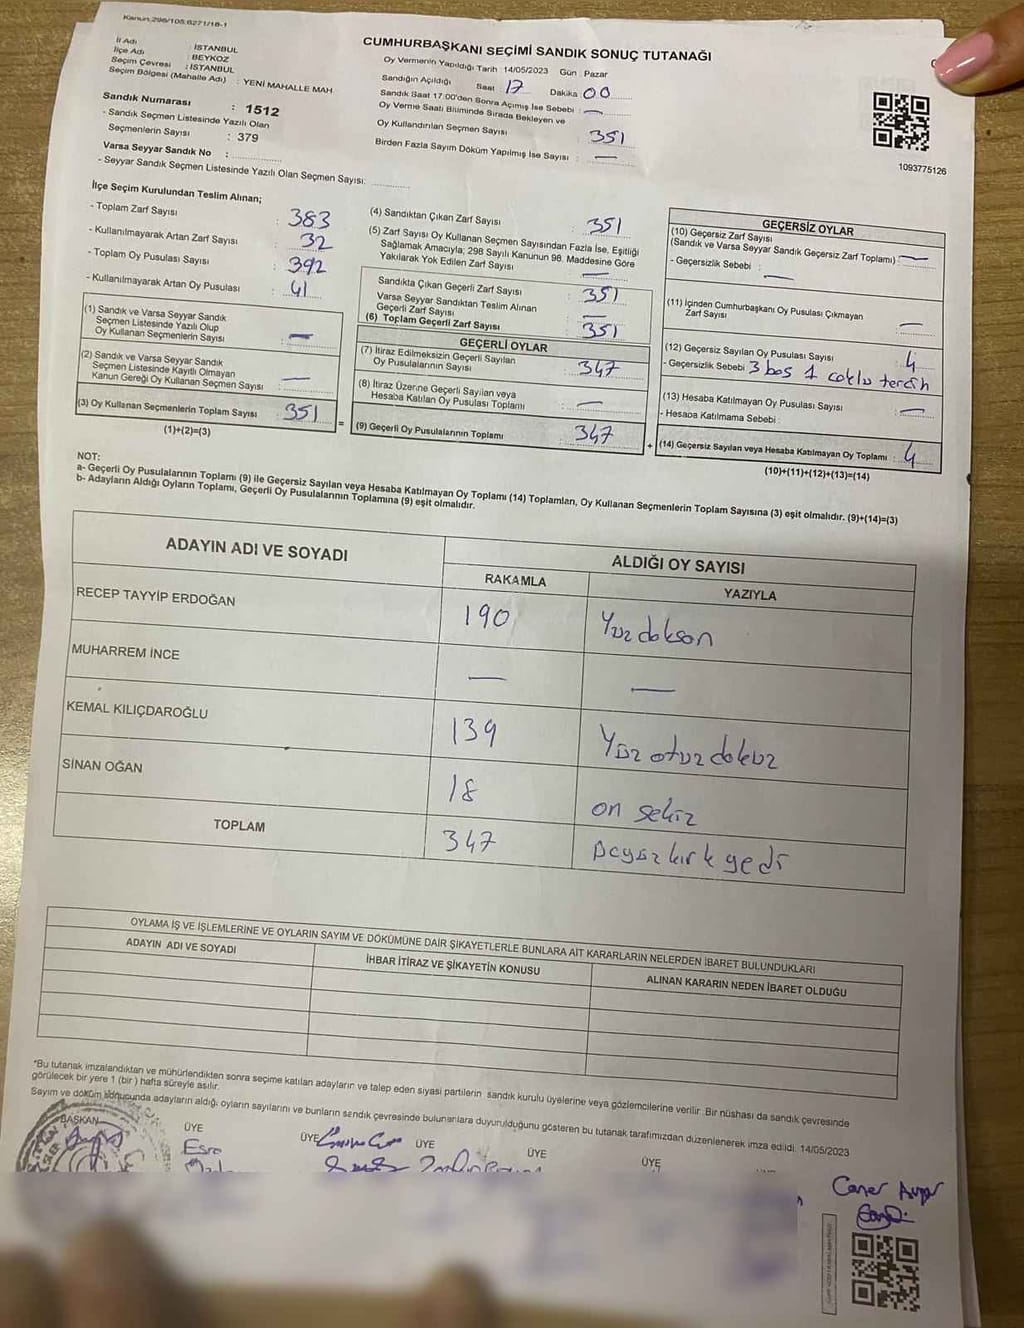 Kanun:298/105;6271/18-1
CUMHURBAŞKANI SEÇİMİ SANDIK SONUÇ TUTANAĞI
İl Adı : İSTANBUL
İlçe Adı : BEYKOZ
Seçim Çevresi : İSTANBUL
Seçim Bölgesi (Mahalle Adı) : YENİ MAHALLE MAH.
Sandık Numarası : 1512
- Sandık Seçmen Listesinde Yazılı Olan
Seçmenlerin Sayısı : 379
Varsa Seyyar Sandık No :
- Seyyar Sandık Seçmen Listesinde Yazılı Olan Seçmen Sayısı:
Oy Vermenin Yapıldığı Tarih : 14/05/2023 Gün : Pazar
Sandığın Açıldığı Saat : 17 Dakika : 00
Sandık Saat 17:00'den Sonra Açımış İse Sebebi : —
Oy Verme Saati Bitiminde Sırada Bekleyen ve
Oy Kullandırılan Seçmen Sayısı : 351
Birden Fazla Sayım Döküm Yapılmış İse Sayısı : —
1093775126
İlçe Seçim Kurulundan Teslim Alınan;
- Toplam Zarf Sayısı : 383
- Kullanılmayarak Artan Zarf Sayısı : 32
- Toplam Oy Pusulası Sayısı : 392
- Kullanılmayarak Artan Oy Pusulası : 41
(1) Sandık ve Varsa Seyyar Sandık
Seçmen Listesinde Yazılı Olup
Oy Kullanan Seçmenlerin Sayısı : —
(2) Sandık ve Varsa Seyyar Sandık
Seçmen Listesinde Kayıtlı Olmayan
Kanun Gereği Oy Kullanan Seçmen Sayısı : —
(3) Oy Kullanan Seçmenlerin Toplam Sayısı : 351
(1)+(2)=(3)
(4) Sandıktan Çıkan Zarf Sayısı : 351
(5) Zarf Sayısı Oy Kullanan Seçmen Sayısından Fazla İse, Eşitliği
Sağlamak Amacıyla; 298 Sayılı Kanunun 98. Maddesine Göre
Yakılarak Yok Edilen Zarf Sayısı : —
Sandıkta Çıkan Geçerli Zarf Sayısı : 351
Varsa Seyyar Sandıktan Teslim Alınan
Geçerli Zarf Sayısı : —
(6) Toplam Geçerli Zarf Sayısı : 351
GEÇERLİ OYLAR
(7) İtiraz Edilmeksizin Geçerli Sayılan
Oy Pusulalarının Sayısı : 347
(8) İtiraz Üzerine Geçerli Sayılan veya
Hesaba Katılan Oy Pusulası Toplamı : —
= (9) Geçerli Oy Pusulalarının Toplamı : 347
GEÇERSİZ OYLAR
(10) Geçersiz Zarf Sayısı
(Sandık ve Varsa Seyyar Sandık Geçersiz Zarf Toplamı) : —
- Geçersizlik Sebebi : —
(11) İçinden Cumhurbaşkanı Oy Pusulası Çıkmayan
Zarf Sayısı : —
(12) Geçersiz Sayılan Oy Pusulası Sayısı : 4
- Geçersizlik Sebebi 3 boş 1 coklu tercih
(13) Hesaba Katılmayan Oy Pusulası Sayısı : —
- Hesaba Katılmama Sebebi :
+ (14) Geçersiz Sayılan veya Hesaba Katılmayan Oy Toplamı : 4
(10)+(11)+(12)+(13)=(14)
NOT:
a- Geçerli Oy Pusulalarının Toplamı (9) ile Geçersiz Sayılan veya Hesaba Katılmayan Oy Toplamı (14) Toplamları, Oy Kullanan Seçmenlerin Toplam Sayısına (3) eşit olmalıdır. (9)+(14)=(3)
b- Adayların Aldığı Oyların Toplamı, Geçerli Oy Pusulalarının Toplamına (9) eşit olmalıdır.
ADAYIN ADI VE SOYADI ALDIĞI OY SAYISI
RAKAMLA YAZIYLA
RECEP TAYYİP ERDOĞAN 190 Yüz doksan
MUHARREM İNCE — —
KEMAL KILIÇDAROĞLU 139 Yüz otuz dokuz
SİNAN OĞAN 18 on sekiz
TOPLAM 347 kırk yedi
OYLAMA İŞ VE İŞLEMLERİNE VE OYLARIN SAYIM VE DÖKÜMÜNE DAİR ŞİKAYETLERLE BUNLARA AİT KARARLARIN NELERDEN İBARET BULUNDUKLARI
ADAYIN ADI VE SOYADI İHBAR İTİRAZ VE ŞİKAYETİN KONUSU ALINAN KARARIN NEDEN İBARET OLDUĞU
*Bu tutanak imzalandıktan ve mühürlendikten sonra seçime katılan adayların ve talep eden siyasi partilerin sandık kurulu üyelerine veya gözlemcilerine verilir. Bir nüshası da sandık çevresinde
görülecek bir yere 1 (bir ) hafta süreyle asılır.
Sayım ve döküm sonucunda adayların aldığı, oyların sayılarını ve bunların sandık çevresinde bulunanlara duyurulduğunu gösteren bu tutanak tarafımızdan düzenlenerek imza edildi. 14/05/2023
BAŞKAN ÜYE ÜYE ÜYE ÜYE ÜYE
Esra
Caner